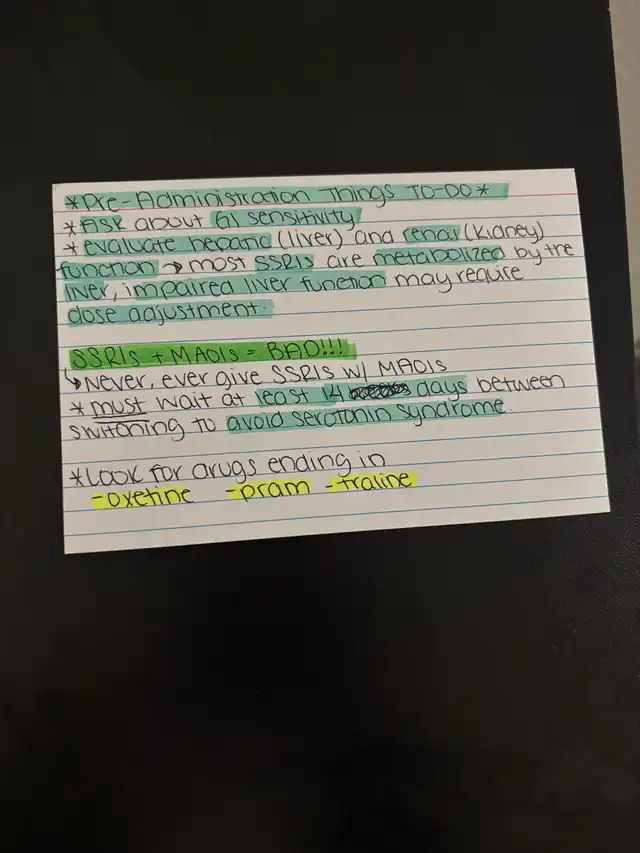 *Pre-Administration Things TO-DO*
*Ask about GI sensitivity
*evaluate hepatic (liver) and renal (kidney)
function → most SSRIs are metabolized by the
liver, impaired liver function may require
dose adjustment.
SSRIs + MAOIs = BAD!!!
↳Never, ever give SSRIs w/ MAOIs
* must wait at least 14 days between
switching to avoid serotonin syndrome.
*Look for drugs ending in
-oxetine -pram -traline